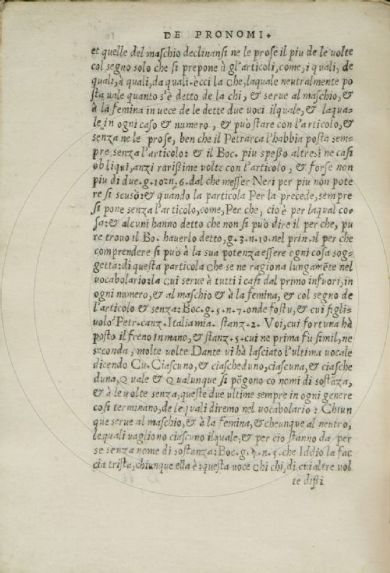 DE PRONOMI.
et quelle del maschio declinansi ne le prose il piu de le volte
col segno solo che si prepone à gl'articoli, come, i quali, de
quali, à quali, da quali. ecci la che, laquale neutralmente po
sta uale quanto s'è detto de la chi, & serue al maschio, &
à la femina in uece de le dette due uoci ilquale, & laqua-
le in ogni caso & numero, & può stare con l'articolo, &
senza ne le prose, ben che il Petrarca l'habbia posta sem-
pre senza l'articolo: & il Boc. piu spesso altresi ne casi
obliqui, anzi rarissime volte con l'articolo, & forse non
piu di due. g. 10. n. 6. dal che messer Neri per piu non pote
re si scusò: & quando la particola Per la precede, sempre
si pone senza l'articolo, come, Per che, ciò è per laqual co-
sa: & alcuni hanno detto che non si può dire il per che, pu
re trouo il Bo. hauerlo detto, g. 2. n. 10. nel prin. il per che
comprendere si può à la sua potenza essere ogni cosa sog-
getta: di questa particola che se ne ragiona lungamēte nel
vocabolario: la cui serue à tutti i casi dal primo infuori, in
ogni numero, & al maschio & à la femina, & col segno de
l'articolo & senza: Boc. g. 5. n. 7. onde fostu, & cui figli-
uolo? Petr. canz. Italia mia. stanz. 2. Voi, cui fortuna hà
posto il freno in mano, & stanz. 5. cui ne prima fu simil, ne
seconda, molte volte. Dante vi hà lasciato l'ultima vocale
dicendo Cu. Ciascuno, & ciascheduno, ciascuna, & ciasche
duna, Quale & Qualunque si pōgono co nomi di sostāza,
& à le volte senza, queste due ultime sempre in ogni genere
cosi terminano, de lequali diremo nel vocabolario: Chiun
que serue al maschio, & à la femina, & cheunque al neutro,
lequali uagliono ciascuno ilquale, & per cio stanno da per
se senza nome di sostanza: Boc. g. 5. n. 5. che Iddio la fac
cia trista, chiunque ella è: questa uoce chi chi, di cui altre vol
te dissi